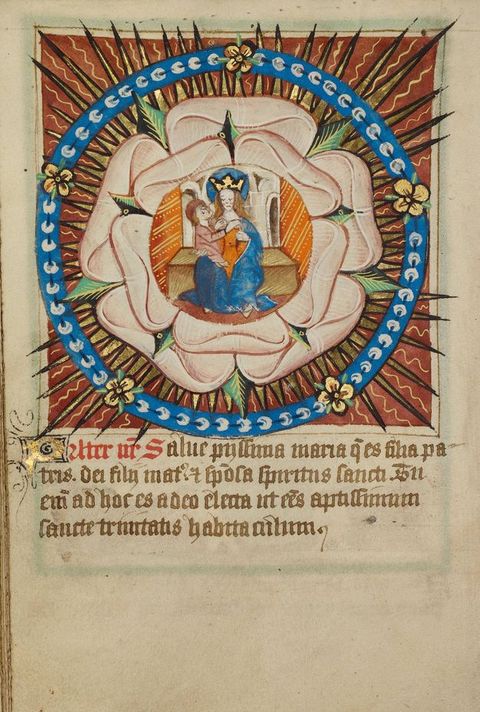 Pater nr̄ Salue pijssima maria q̄ es filia pa
tris. dei filij mat᷒. ⁊ spōsa spiritus sancti. Tu
eīm ad hoc es adeo electa ut eēs aptissimum
sancte trinitatis habitaculum.